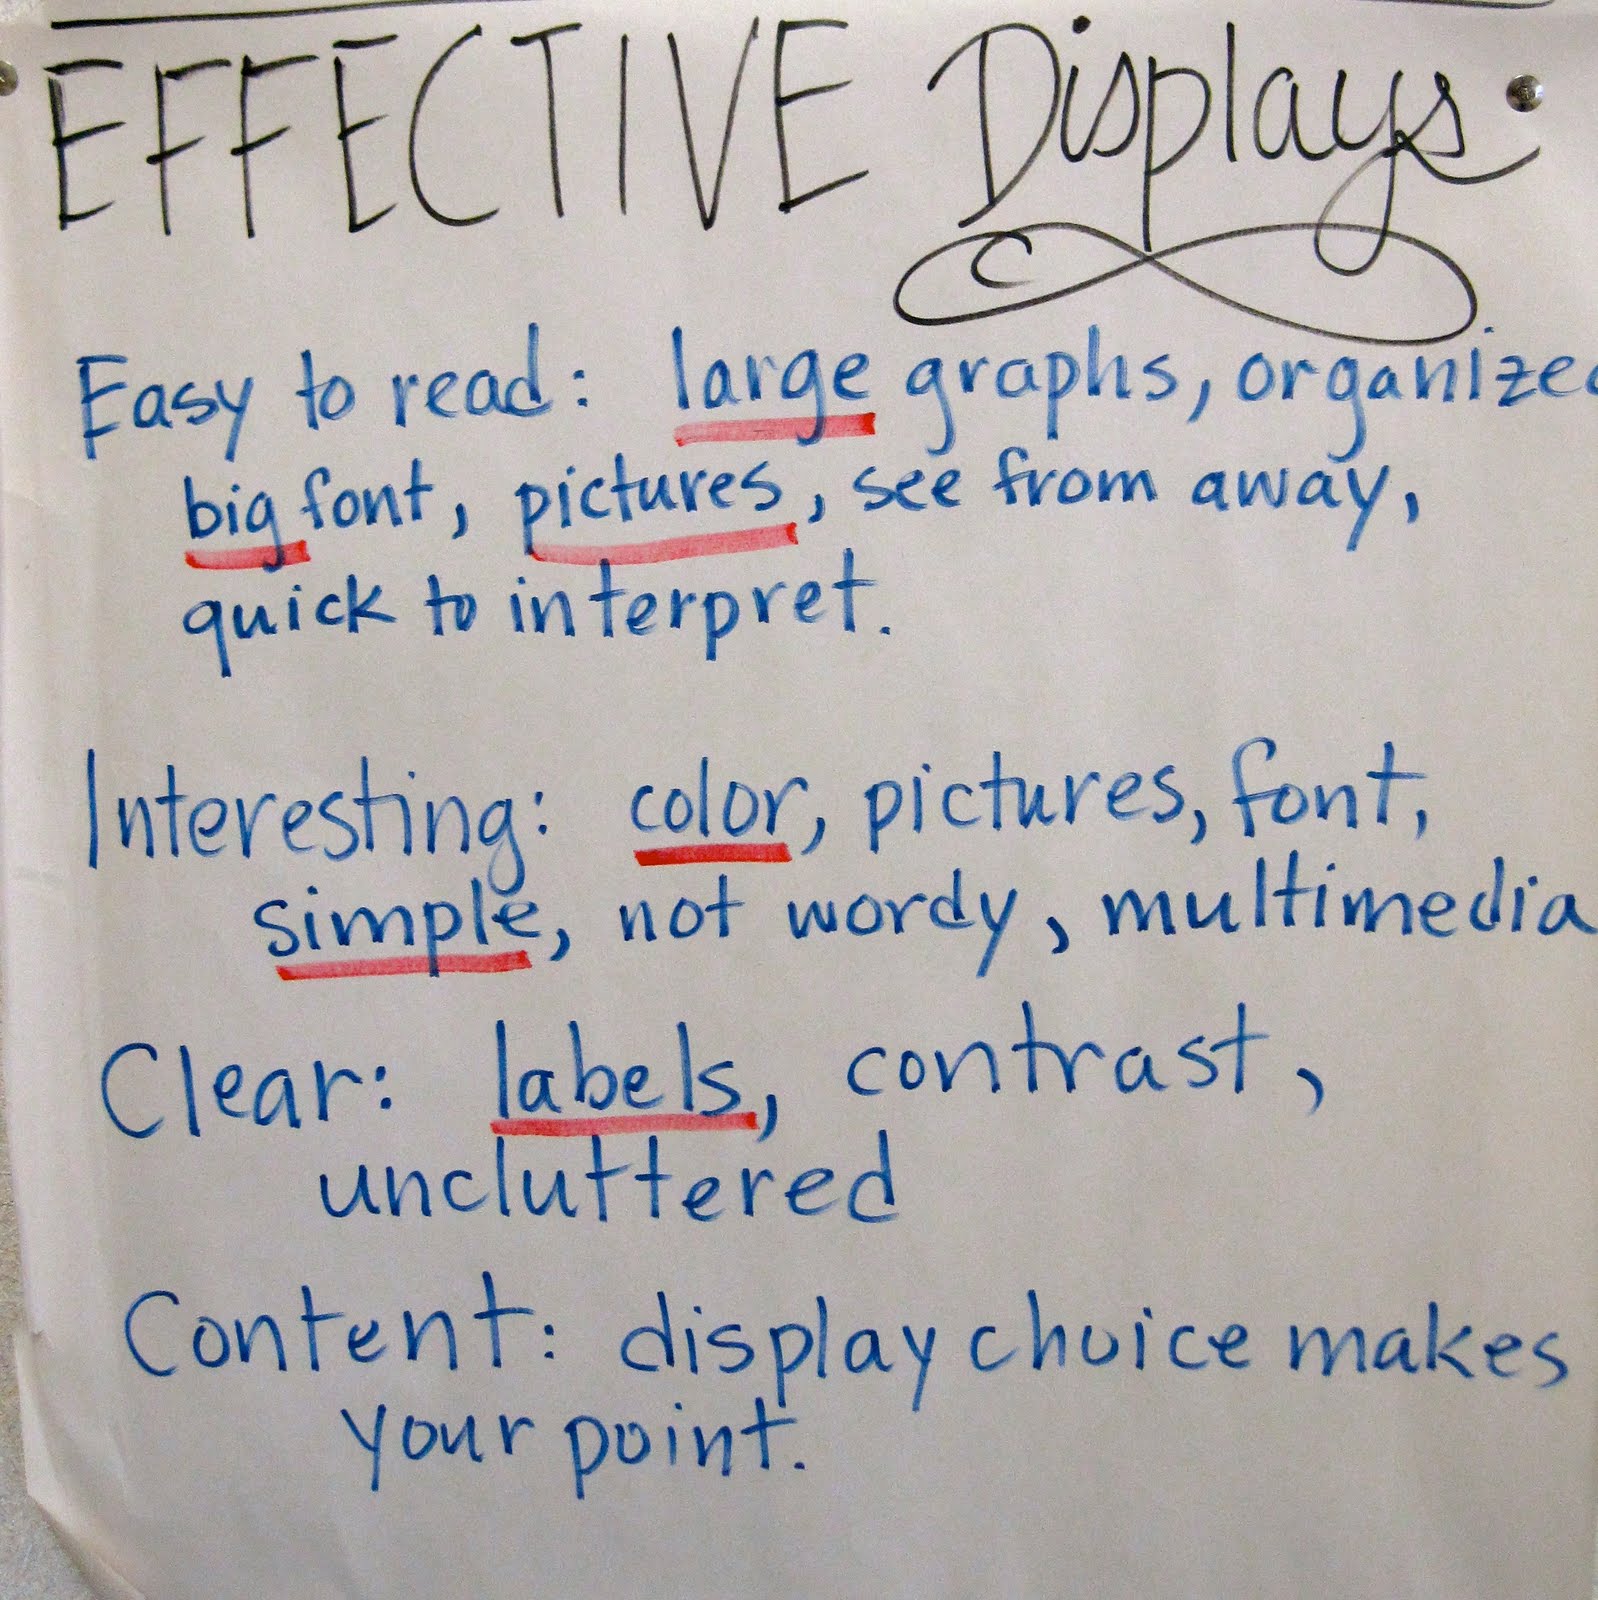 EFFECTIVE Displays:
Easy to read: large graphs, organized
big font, pictures, see from away,
quick to interpret.
Interesting: color, pictures, font,
simple, not wordy, multimedia
Clear: labels, contrast,
uncluttered
Content: display choice makes
your point.